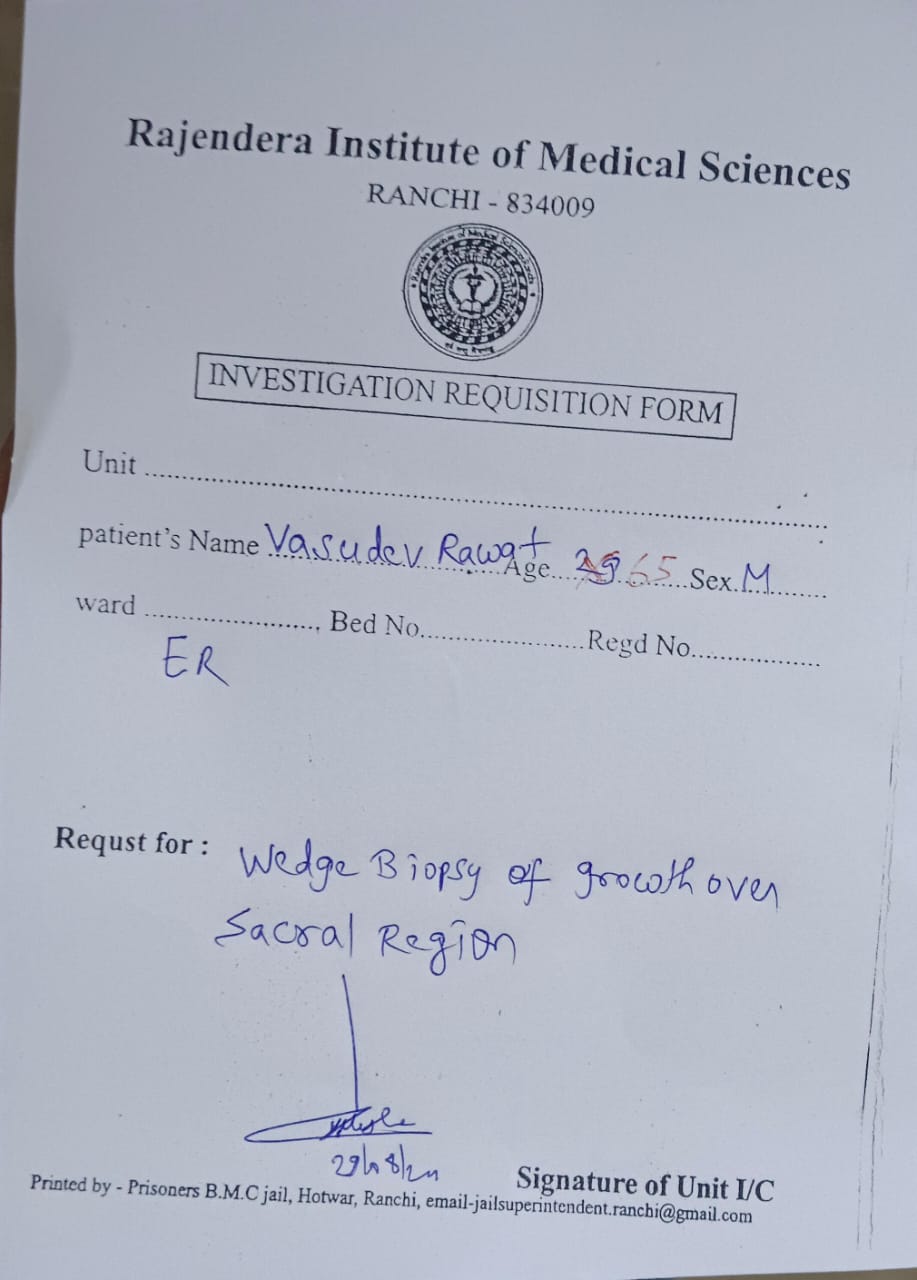 Rajendera Institute of Medical Sciences
RANCHI - 834009
INVESTIGATION REQUISITION FORM
Unit ........................................
patient's Name Vasudev Rawat Age 65 Sex. M
ward ...................., Bed No....................Regd No..................
ER
Requst for : Wedge Biopsy of growth over
Sacral Region
Signature of Unit I/C
Printed by - Prisoners B.M.C jail, Hotwar, Ranchi, email-jailsuperintendent.ranchi@gmail.com